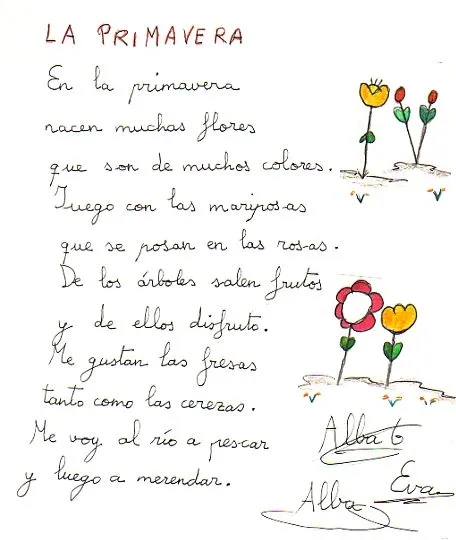 LA PRIMAVERA
En la primavera
nacen muchas flores
que son de muchos colores.
Juego con las mariposas
que se posan en las rosas.
De los árboles salen frutos
y de ellos disfruto.
Me gustan las fresas
tanto como las cerezas.
Me voy al río a pescar
y luego a merendar.
Alba G
Eva
Alba